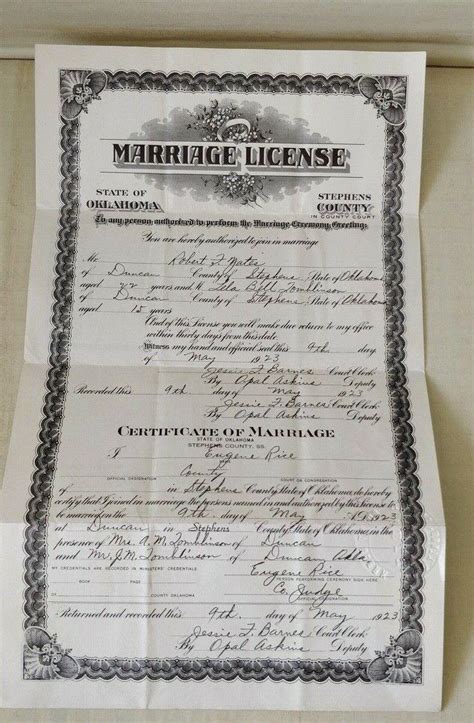 MARRIAGE LICENSE
STATE OF OKLAHOMA
STEPHENS COUNTY
IN COUNTY COURT
To any person authorized to perform the Marriage Ceremony, Greeting:
You are hereby authorized to join in marriage
Mr Robert F. Yates
of Duncan County of Stephens State of Oklahoma
aged 22 years and M Lela Bell Tomlinson
of Duncan County of Stephens State of Oklahoma
aged 15 years
And of this License you will make due return to my office
within thirty days from this date
Witness my hand and official seal this 9th day
of May 1923
Jessie F. Barnes Court Clerk
By Opal Askins Deputy
Recorded this 9th day of May 1923
Jessie F. Barnes Court Clerk
By Opal Askins Deputy
CERTIFICATE OF MARRIAGE
STATE OF OKLAHOMA
STEPHENS COUNTY, SS.
I Eugene Rice
County
OFFICIAL DESIGNATION COURT OR CONGREGATION
of in Stephens County, State of Oklahoma, do hereby
certify that I joined in marriage the persons named in and authorized by this license to
be married on the 9th day of May 1923
at Duncan in Stephens County, State of Oklahoma, in the
presence of Mrs. A. M. Tomlinson of Duncan
and Mr. J. M. Tomlinson of Duncan Okla
MY CREDENTIALS ARE RECORDED IN MINISTERS' CREDENTIALS
Eugene Rice
PERSON PERFORMING CEREMONY SIGN HERE
BOOK PAGE
Co. Judge
COUNTY OKLAHOMA OFFICIAL DESIGNATION
Returned and recorded this 9th day of May 1923
Jessie F. Barnes Court Clerk
By Opal Askins Deputy